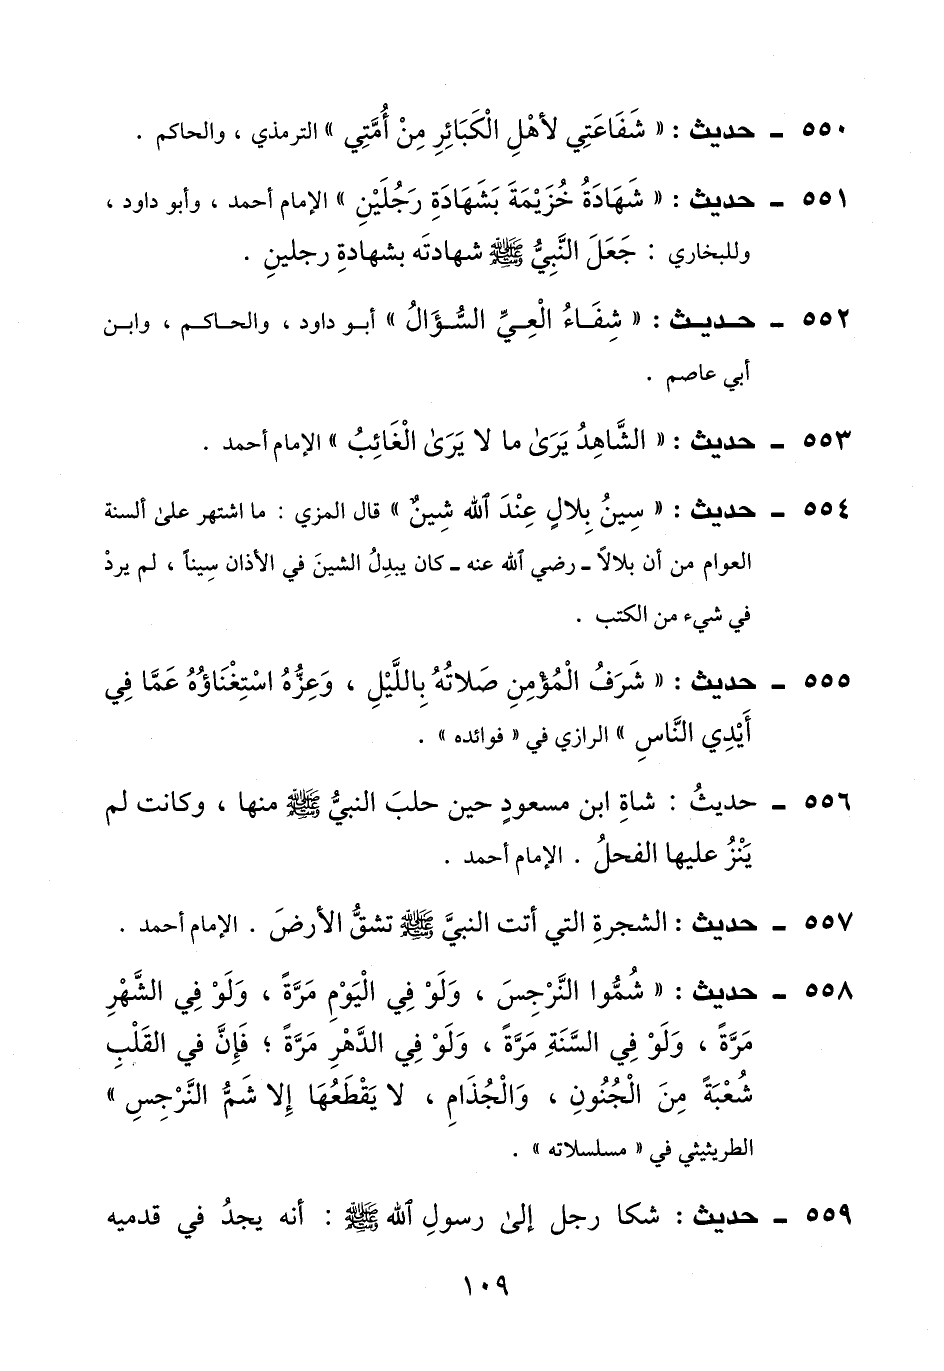 ٥٥٠ ـ حديث : « شَفَاعَتِي لأهْلِ الْكَبَائِرِ مِنْ أُمَّتِي » الترمذي ، والحاكم .
٥٥١ ـ حديث : « شَهَادَةُ خُزَيْمَةَ بَشَهَادَةِ رَجُلَيْنِ » الإمام أحمد ، وأبو داود ،
وللبخاري : جَعَلَ النَّبِيُّ ﷺ شهادتَه بشهادةِ رجلينِ .
٥٥٢ ـ حـديـث : « شِفَـاءُ الْعِـيِّ السُّـؤَالُ » أبـو داود ، والحـاكـم ، وابـن
أبي عاصم .
٥٥٣ ـ حديث : « الشَّاهِدُ يَرَىٰ ما لا يَرَىٰ الْغَائِبُ » الإمام أحمد .
٥٥٤ ـ حديث : « سِينُ بِلالٍ عِنْدَ ٱلله شِينٌ » قال المزي : ما اشتهر علىٰ ألسنة
العوام من أن بلالاً ـ رضي ٱلله عنه ـ كان يبدِلُ الشينَ في الأذان سِيناً ، لم يردْ
في شيء من الكتب .
٥٥٥ ـ حديث : « شَرَفُ الْمُؤْمِنِ صَلاتُهُ بِاللَّيْلِ ، وَعِزُّهُ اسْتِغْنَاؤُهُ عَمَّا فِي
أَيْدِي النَّاسِ » الرازي في « فوائده » .
٥٥٦ ـ حديثُ : شاةِ ابن مسعودٍ حين حلبَ النبيُّ ﷺ منها ، وكانت لم
يَنْزُ عليها الفحلُ . الإمام أحمد .
٥٥٧ ـ حديث : الشجرةِ التي أتت النبيَّ ﷺ تشقُّ الأرضَ . الإمام أحمد .
٥٥٨ ـ حديث : « شُمُّوا النَّرْجِسَ ، وَلَوْ فِي الْيَوْمِ مَرَّةً ، وَلَوْ فِي الشَّهْرِ
مَرَّةً ، وَلَوْ فِي السَّنَةِ مَرَّةً ، وَلَوْ فِي الدَّهْرِ مَرَّةً ؛ فَإِنَّ في القَلْبِ
شُعْبَةً مِنَ الْجُنُونِ ، وَالْجُذَامِ ، لا يَقْطَعُهَا إِلا شَمُّ النَّرْجِسِ »
الطريثيثي في « مسلسلاته » .
٥٥٩ ـ حديث : شكا رجل إلىٰ رسولِ ٱلله ﷺ : أنه يجدُ في قدميه
١٠٩